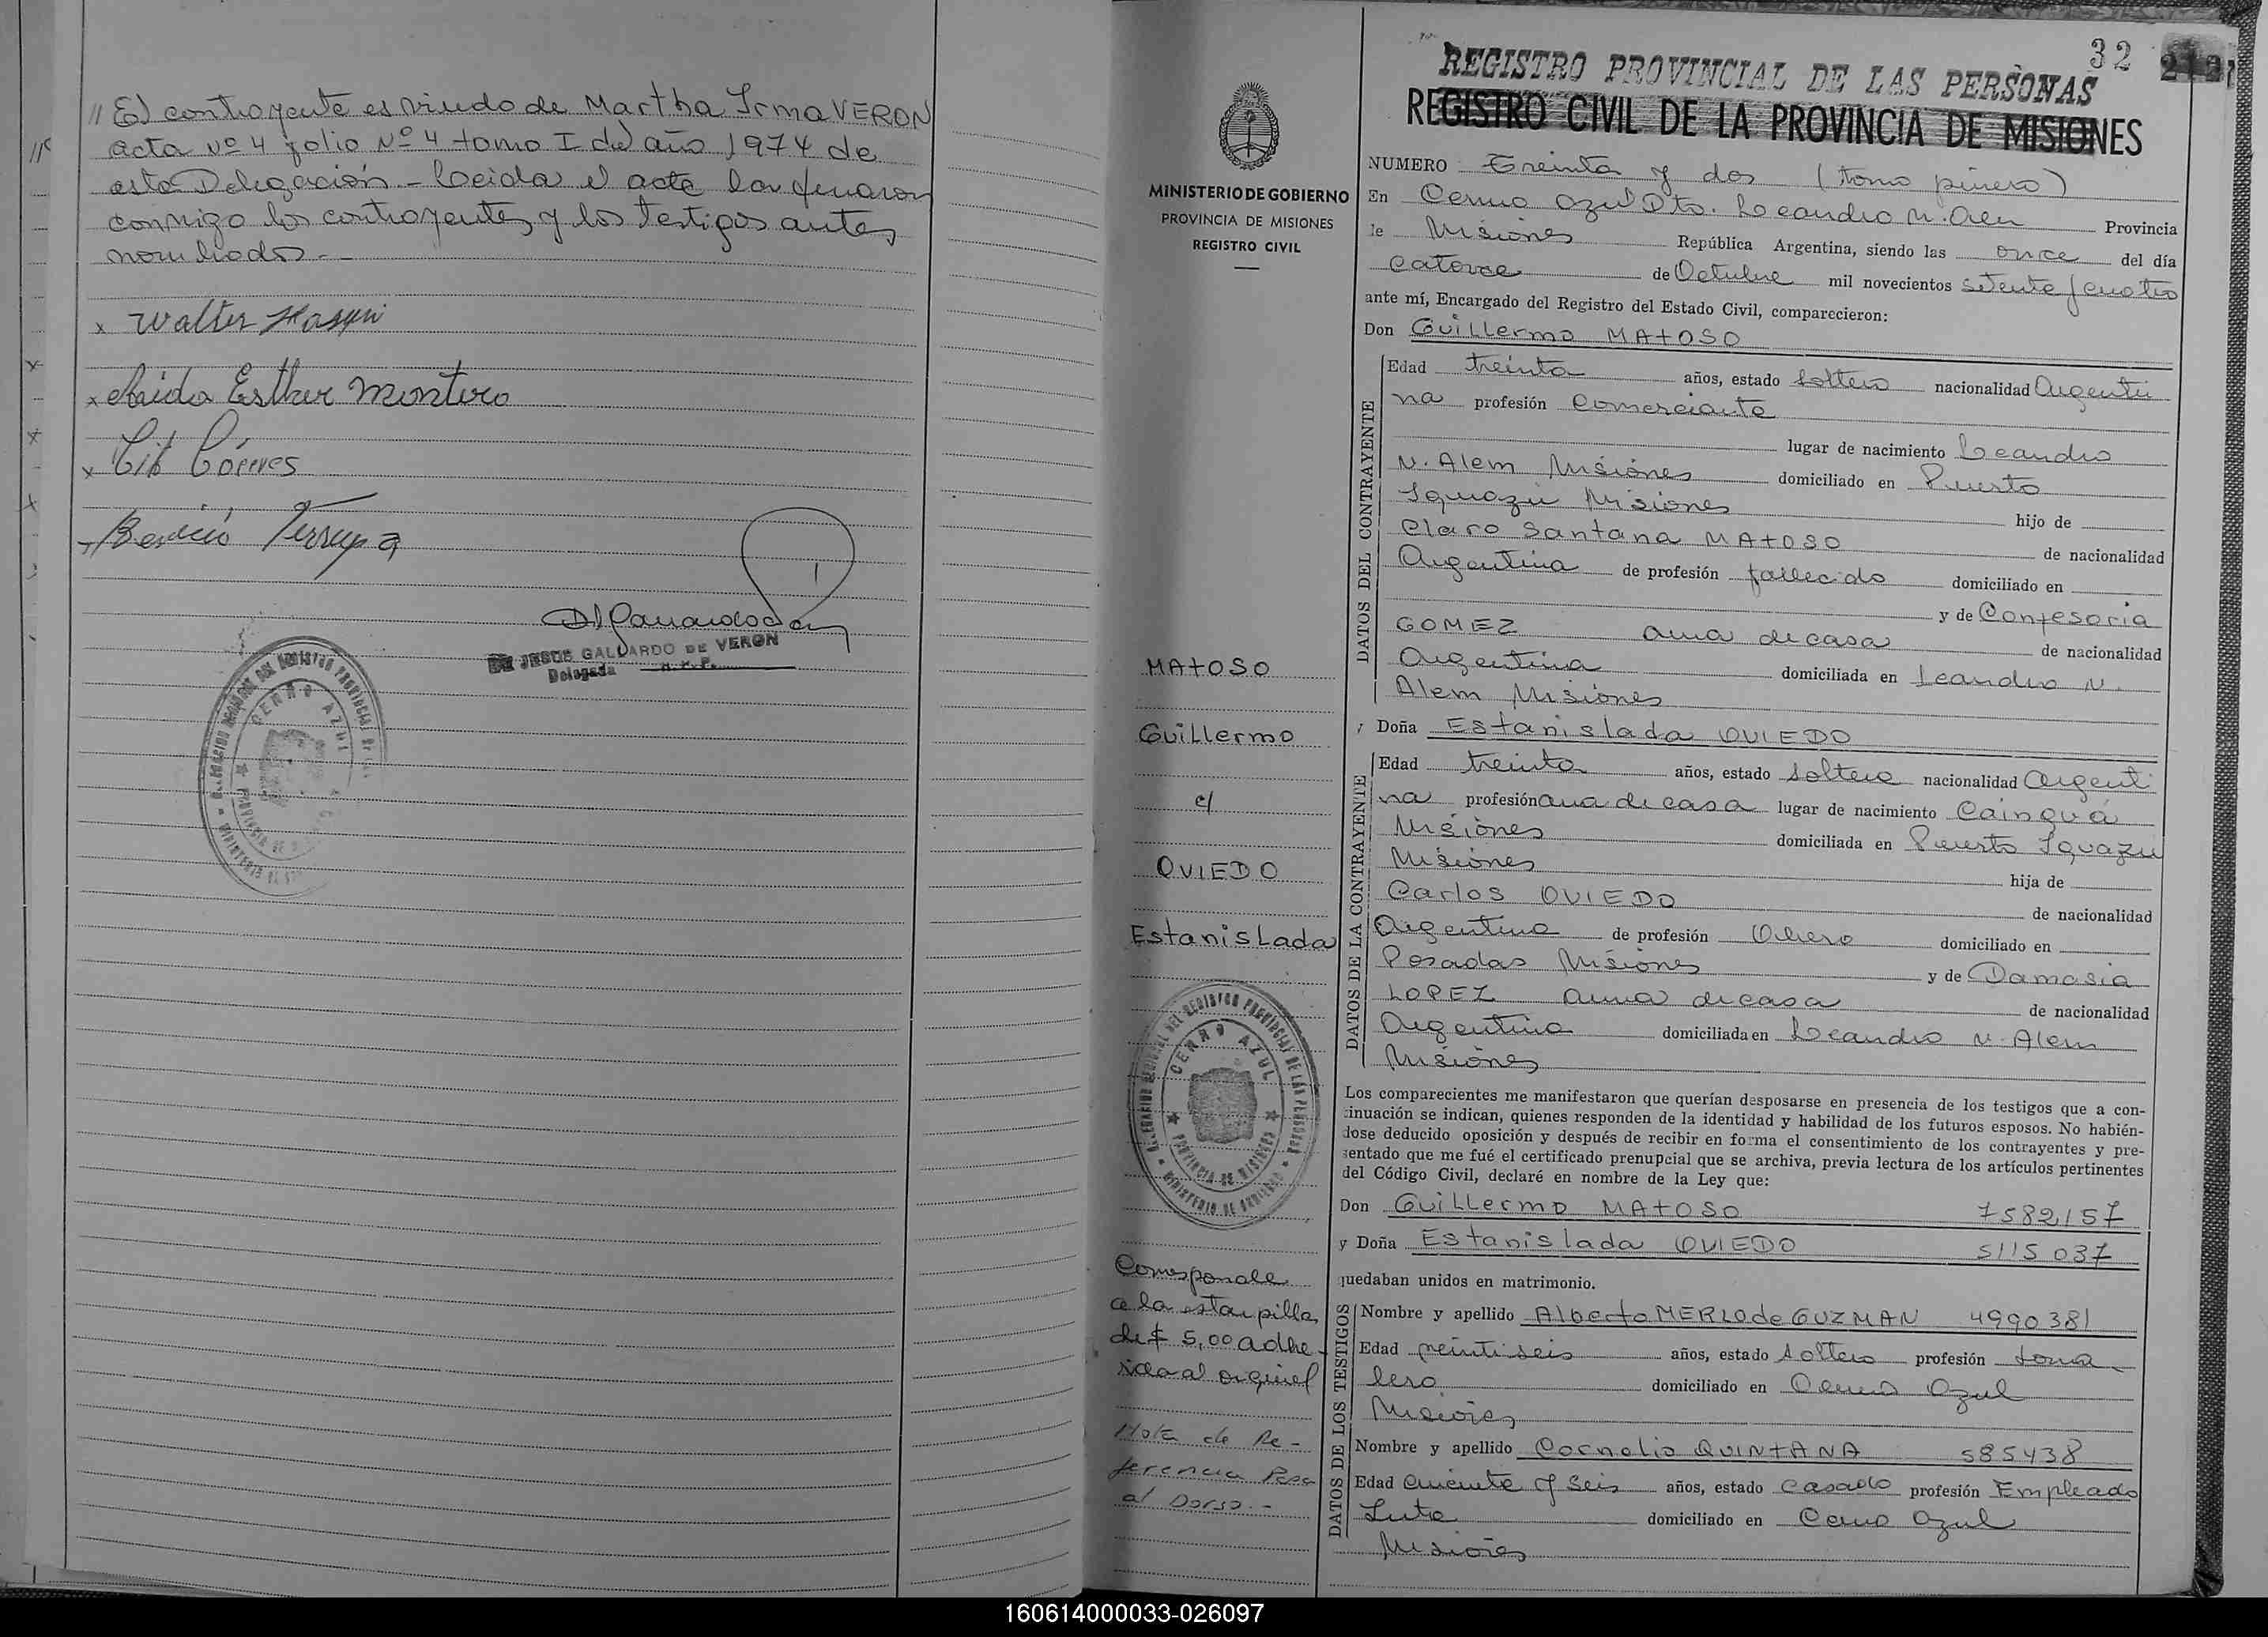 // El contrayente es viudo de Martha Irma VERON
acta Nº 4 folio Nº 4 tomo I del año 1974 de
esta Delegación - Leida el acta la firmaron
conmigo los contrayentes y los testigos antes
nombrados.-
x Walter
x Esther Montero
x
x
DE JESUS GALLARDO DE VERON
Delegada
CERRO AZUL
32
REGISTRO PROVINCIAL DE LAS PERSONAS
REGISTRO CIVIL DE LA PROVINCIA DE MISIONES
MINISTERIO DE GOBIERNO
PROVINCIA DE MISIONES
REGISTRO CIVIL
MATOSO
Guillermo
c/
OVIEDO
Estanislada
CERRO AZUL
PROVINCIA DE MISIONES
Corresponde
a la estampilla
de $ 5,00 adhe-
rida al original
Nota de Re-
ferencia Pasa
al Dorso.-
NUMERO Treinta y dos (tomo primero)
En Cerro Azul Dto. Leandro N. Alem Provincia
de Misiones República Argentina, siendo las once del día
catorce de Octubre mil novecientos setenta y cuatro
ante mí, Encargado del Registro del Estado Civil, comparecieron:
Don Guillermo MATOSO
DATOS DEL CONTRAYENTE
Edad treinta años, estado soltero nacionalidad Argenti
na profesión Comerciante
lugar de nacimiento Leandro
N. Alem Misiones domiciliado en Puerto
Iguazú Misiones hijo de
Claro Santana MATOSO de nacionalidad
Argentina de profesión fallecido domiciliado en
y de Confesoria
GOMEZ ama de casa de nacionalidad
Argentina domiciliada en Leandro N.
Alem Misiones
y Doña Estanislada OVIEDO
DATOS DE LA CONTRAYENTE
Edad treinta años, estado soltera nacionalidad Argenti
na profesión ama de casa lugar de nacimiento Cainguá
Misiones domiciliada en Puerto Iguazu
Misiones hija de
Carlos OVIEDO de nacionalidad
Argentina de profesión Obrero domiciliado en
Posadas Misiones y de Damasia
LOPEZ ama de casa de nacionalidad
Argentina domiciliada en Leandro N. Alem
Misiones
Los comparecientes me manifestaron que querían desposarse en presencia de los testigos que a con-
tinuación se indican, quienes responden de la identidad y habilidad de los futuros esposos. No habién-
dose deducido oposición y después de recibir en forma el consentimiento de los contrayentes y pre-
sentado que me fué el certificado prenupcial que se archiva, previa lectura de los artículos pertinentes
del Código Civil, declaré en nombre de la Ley que:
Don Guillermo MATOSO 7582157
y Doña Estanislada OVIEDO 5115037
quedaban unidos en matrimonio.
DATOS DE LOS TESTIGOS
Nombre y apellido Alberto MERLO de GUZMAN 4990381
Edad veintiseis años, estado soltero profesión Jorna
lero domiciliado en Cerro Azul
Misiones
Nombre y apellido Cornelio QUINTANA 585438
Edad cincuenta y seis años, estado casado profesión Empleado
domiciliado en Cerro Azul
Misiones
160614000033-026097